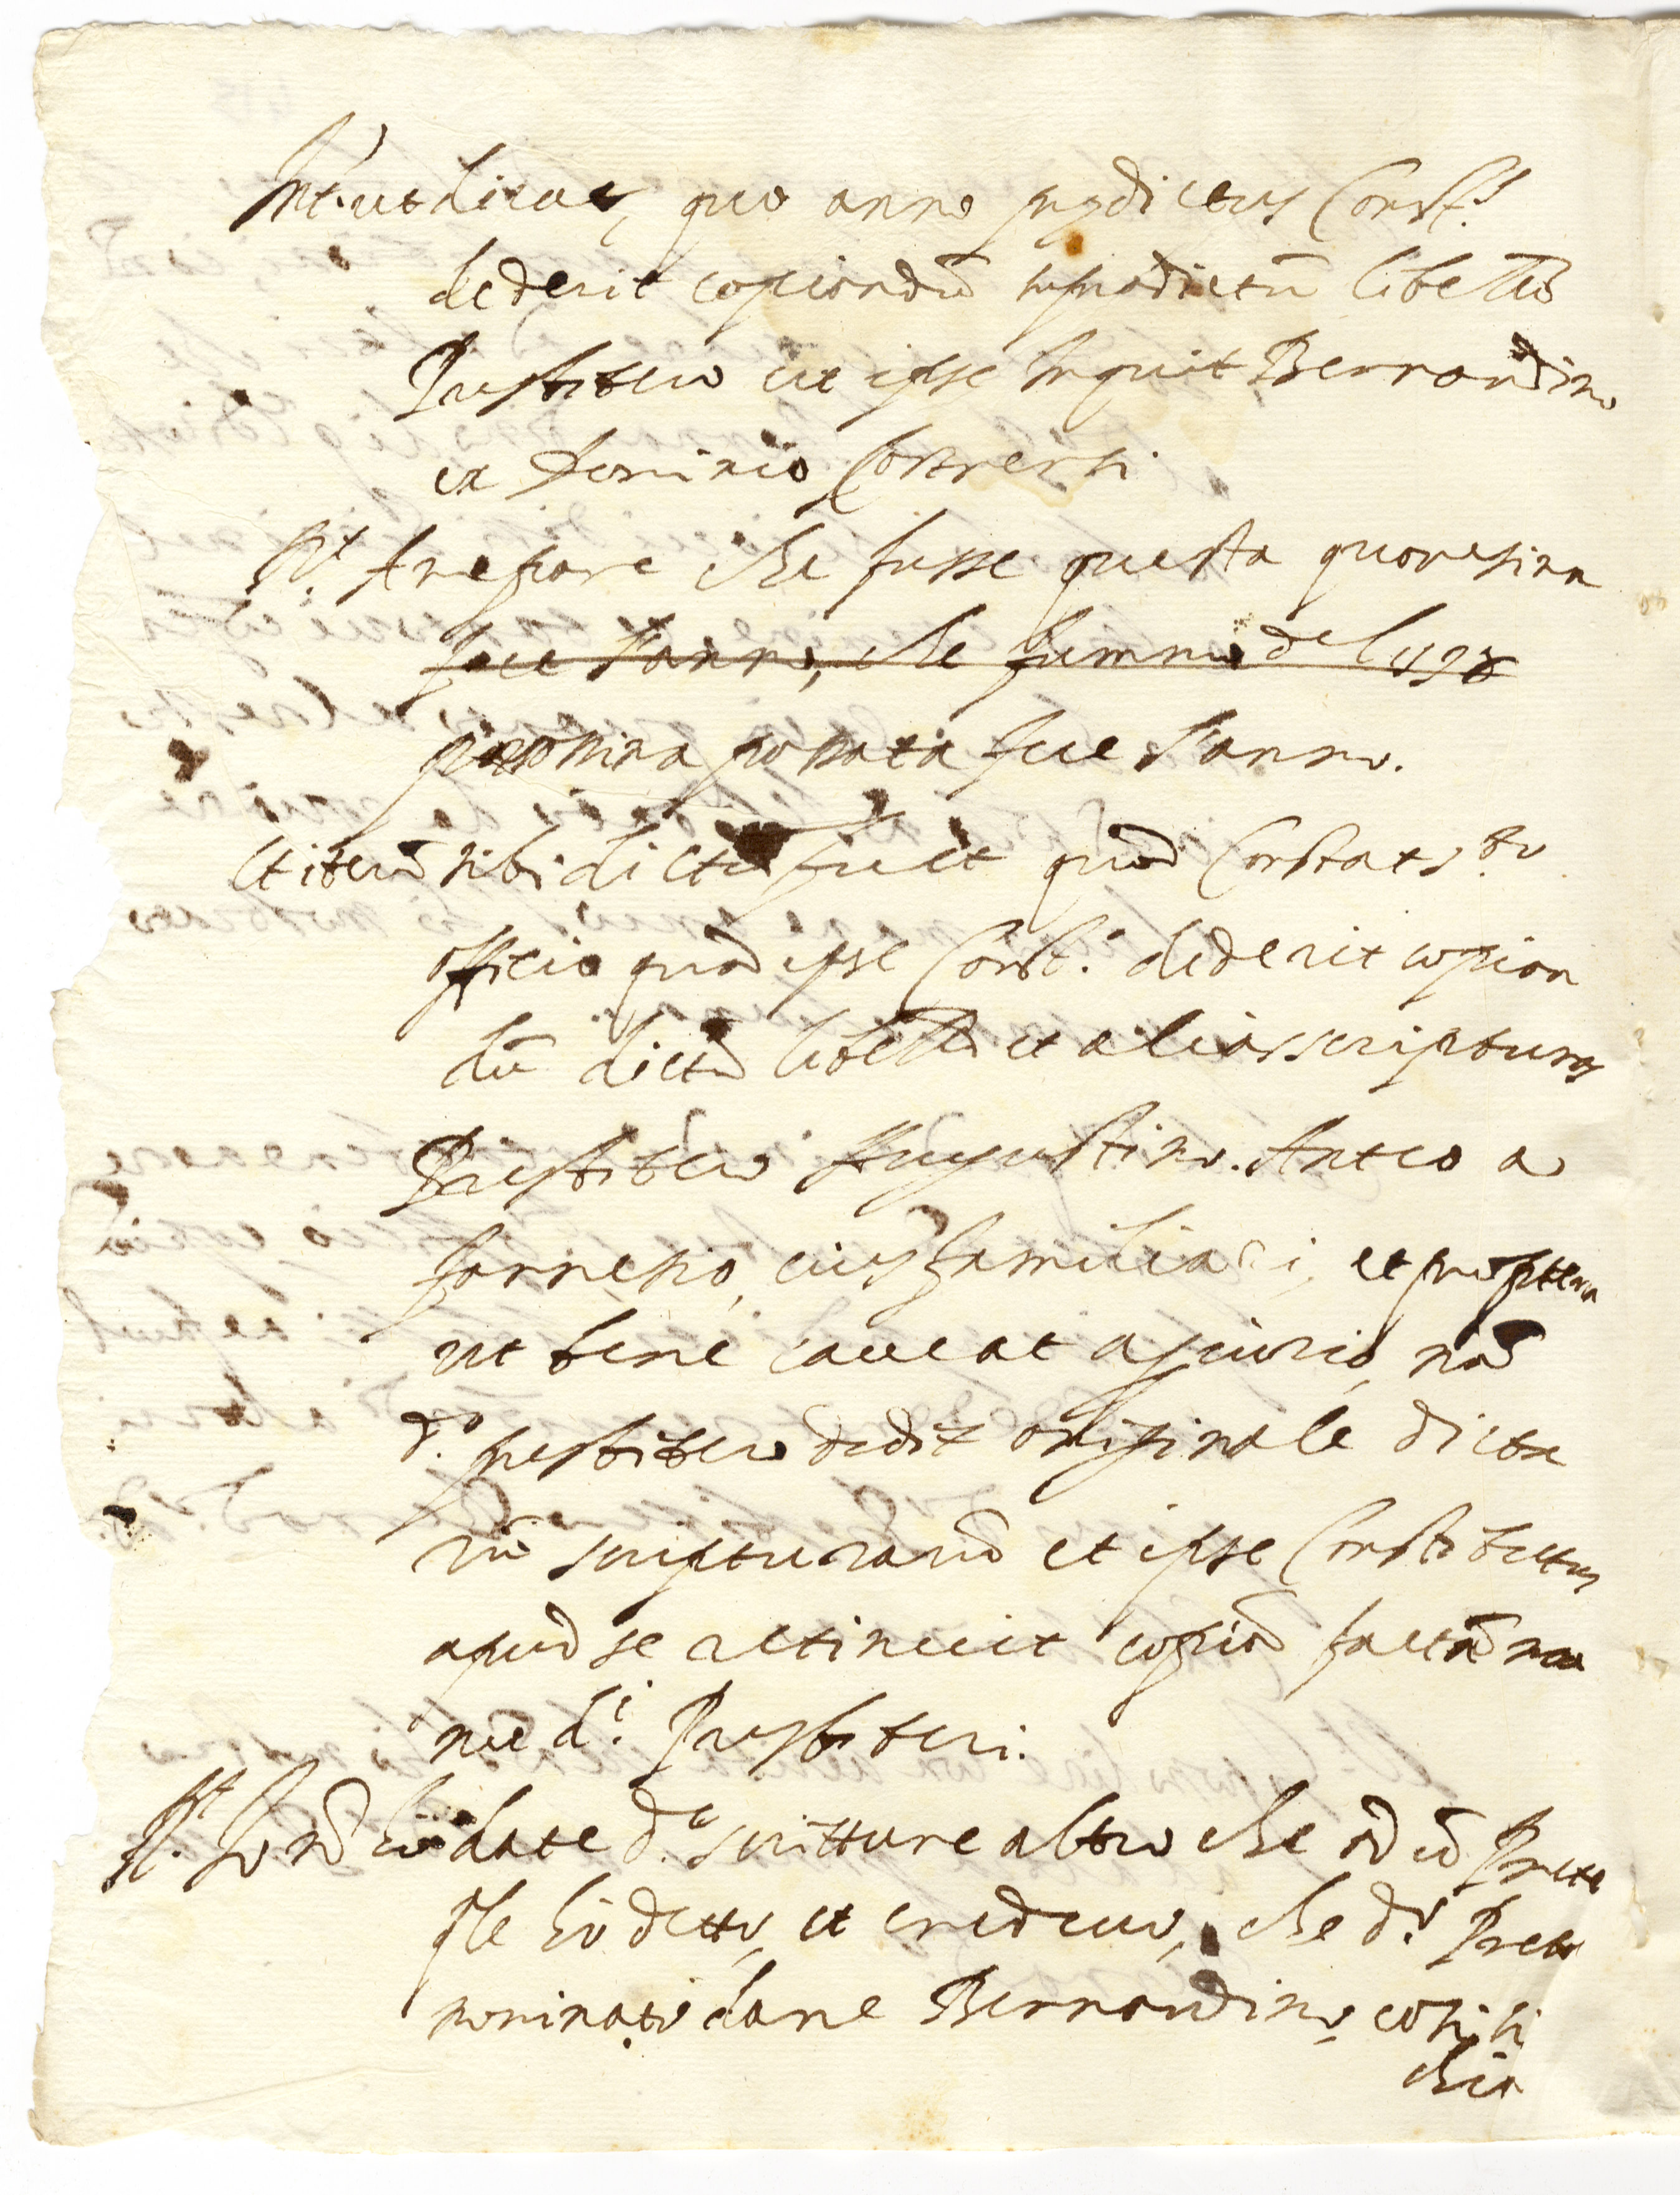 Int. ut dicat, quo anno supradictus Const.s
dederit copiandū supradictū libellū
Presbitero ut ipse inquit Bernardino
ex Dominio Conversi
R.t A me pare che fusse questa quaresima
fece l'anno, che fummo del 1598
prossima passata fece l'anno.
Et iterū sibi dictū fuit quod Constat s.to
officio quod ipse Const. dederit copian
dū dictū libellū et alias scripturas
Presbitero Augustino Anteo a
farnesio, eius familiari, et propterea
ut bene caveat a periurio, nā
d.o presbitero dedit originale dicta
rū scripturarū et ipse Constitutus
apud se retinuit copiā factā ma
nu d.i Presbiteri.
R.t Io nō hò date d.e scritture altro che ad ū Prete
che hò detto, et credevo, che d.o Prete
nominato dane Bernardino, cosi si
chia